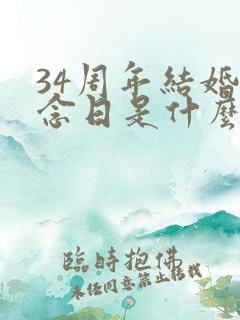 34周年結婚
念日是什麼
臨時抱佛
未經同意禁止轉載